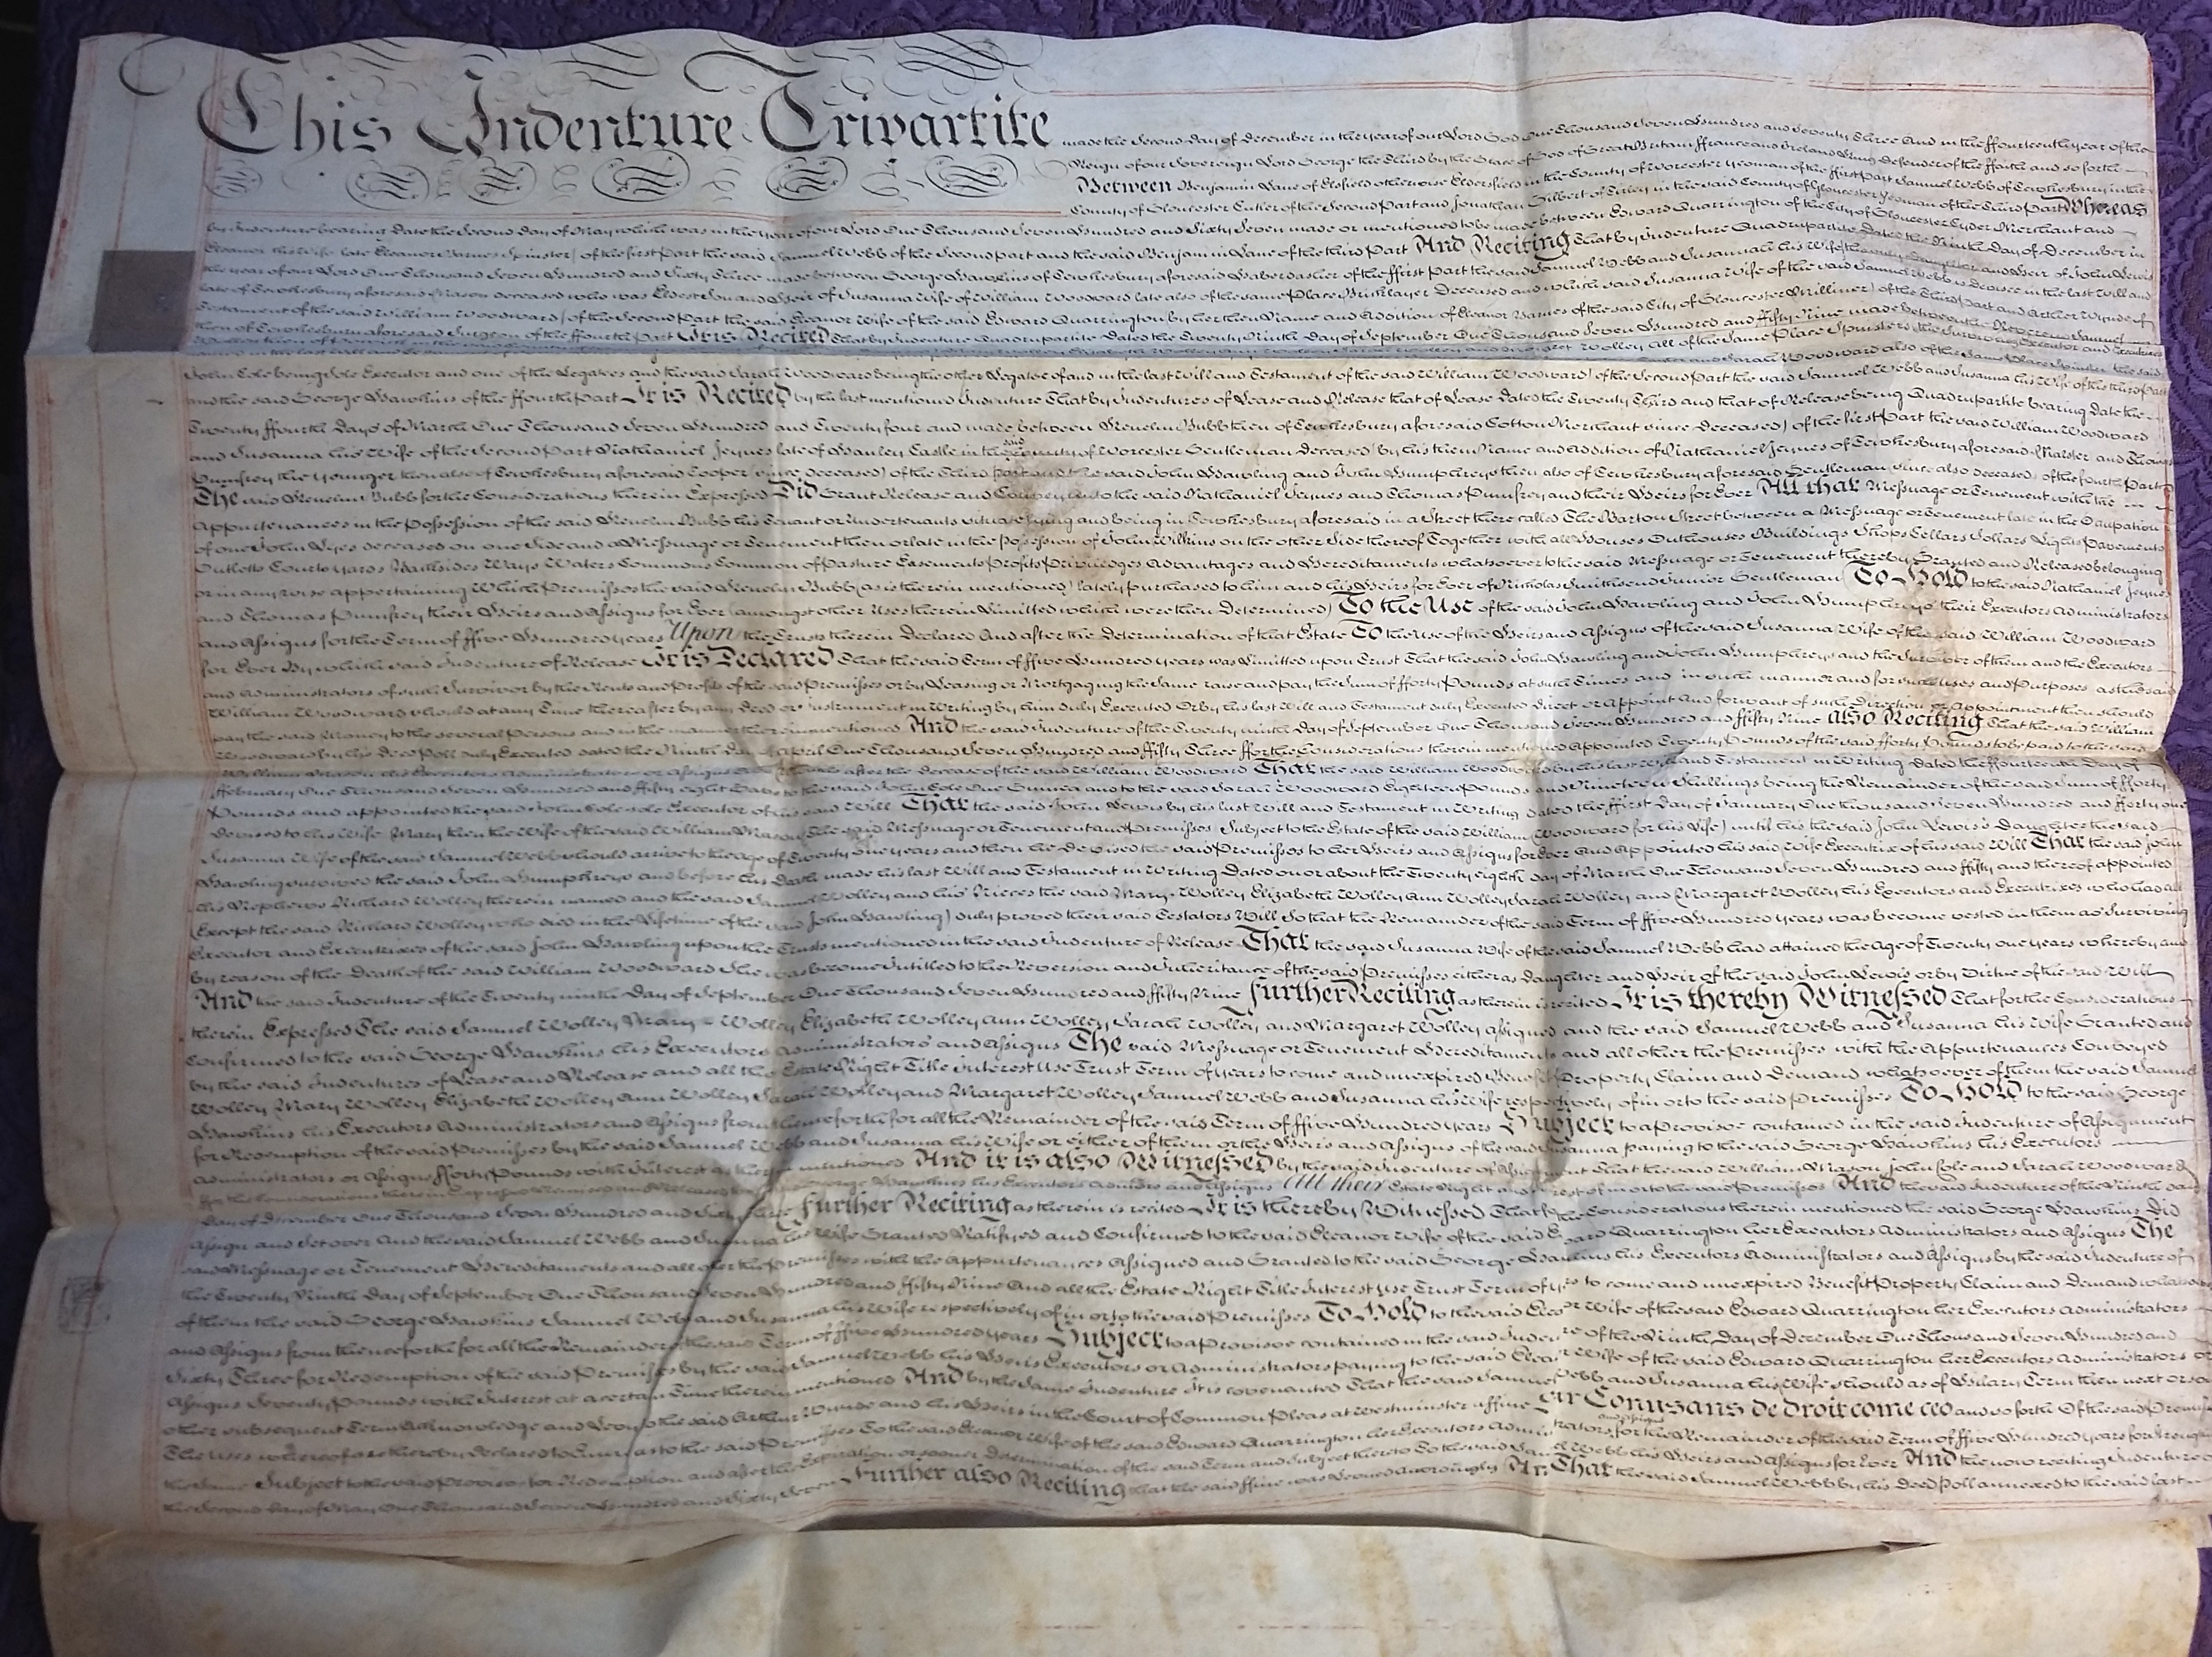 This Indenture Tripartite made the Second Day of December in the year of our Lord God One Thousand Seven Hundred and Seventy Three And in the ffourteenth year of the
Reign of our Sovereign Lord George the Third by the Grace of God of Great Britain ffrance and Ireland King defender of the ffaith and so forth
Between Benjamin Lane of Elsfield otherwise Eldersfield in the County of Worcester Yeoman of the ffirst Part Samuel Webb of Tewkesbury in the
County of Gloucester Cutler of the Second Part and Jonathan Gilbert of Tirley in the said County of Gloucester Yeoman of the Third Part Whereas
by Indenture bearing Date the Second day of May which was in the year of our Lord One Thousand Seven Hundred and Sixty Seven made or mentioned to be made between Edward Quarrington of the City of Gloucester Cyder Merchant and
Eleanor his Wife (late Eleanor Barnes Spinster) of the first Part the said Samuel Webb of the Second part and the said Benjamin Lane of the third Part And Reciting That by Indenture Quadrupartite Dated the Ninth Day of December in
the year of our Lord One Thousand Seven Hundred and Sixty Three made between George Hawkins of Tewkesbury aforesaid Haberdasher of the ffirst Part the said Samuel Webb and Susannah his Wife Daughter and Heir of John Lewis
late of Tewkesbury aforesaid Mason deceased who was Eldest Son and Heir of Susanna Wife of William Woodward late also of the same Place Bricklayer Deceased and which said Susanna Wife of the said Samuel Webb is devisee in the last Will and
Testament of the said William Woodward) of the Second Part the said Eleanor Wife of the said Edward Quarrington by her then Name and Addition of Eleanor Barnes of the said City of Gloucester Milliner) of the Third Part and Arther Wynde of
then of Tewkesbury aforesaid Surgeon of the ffourth Part It is Recited That by Indenture Quadrupartite Dated the Twenty Ninth Day of September One Thousand Seven Hundred and ffifty Nine made between the Reverend Samuel
John Cole being Sole Executor and one of the Legatees and the said Sarah Woodward being the other Legatee of and in the last Will and Testament of the said William Woodward) of the Second Part the said Samuel Webb and Susanna his Wife of the third Part
and the said George Hawkins of the ffourth Part It is Recited by the last mentioned Indenture That by Indentures of Lease and Release that of Lease Dated the Twenty Third and that of Release being Quadrupartite bearing Date the
Twenty ffourth Days of March One Thousand Seven Hundred and Twenty four and made between Kenelm Bubb then of Tewkesbury aforesaid Cotton Merchant since Deceased) of the first Part the said William Woodward
and Susanna his Wife of the Second Part Nathaniel Jeynes late of Hanley Castle in the said County of Worcester Gentleman Deceased) by his then Name and Addition of Nathaniel Jeynes of Tewkesbury aforesaid Malster and Thomas
Pumfrey the younger then also of Tewkesbury aforesaid Cooper (since deceased) of the Third part and the said John Hawling and John Humphreys then also of Tewkesbury aforesaid Gentleman since also deceased) of the fourth Part
The said Kenelm Bubb for the Considerations therein Expressed Did Grant Release and Convey unto the said Nathaniel Jeynes and Thomas Pumfrey and their Heirs for Ever All that Messuage or Tenement with the
Appurtenances in the Possession of the said Kenelm Bubb his Tenant or Undertenants situate lying and being in Tewkesbury aforesaid in a Street there called The Barton Street between a Messuage or Tenement late in the Occupation
of one John Dyes deceased on one Side and a Messuage or Tenement then or late in the possession of John Wilkins on the other Side thereof Together with all Houses Outhouses Buildings Shops Cellars Sollars Lights Pavements
Outletts Courtyards Backsides Ways Waters Commons Common of Pasture Easements Profits Priviledges Advantages and Hereditaments whatsoever to the said Messuage or Tenement thereby Granted and Released belonging
or in any wise appertaining Which Premisses the said Kenelm Bubb (as is therein mentioned) lately purchased to him and his Heirs for Ever of Nicholas Smithsend Junior Gentleman To Hold to the said Nathaniel Jeynes
and Thomas Pumfrey their Heirs and Assigns for Ever (amongst other Uses therein Limitted which were then Determined) To the Use of the said John Hawling and John Humphreys their Executors Administrators
and Assigns for the Term of ffive Hundred years Upon the Trusts therein Declared And after the determination of that Estate To the Use of the Heirs and Assigns of the said Susanna Wife of the said William Woodward
for Ever By which said Indenture of Release It is Declared That the said Term of ffive Hundred years was Limitted upon Trust That the said John Hawling and John Humphreys and the Survivor of them and the Executors
and Administrators of such Survivor by the Rents and Profits of the said Premisses or by Leasing or Mortgaging the Same raise and pay the Sum of fforty Pounds at such Times and in such manner and for such Uses and Purposes as the said
William Woodward should at any Time thereafter by any Deed or Instrument in Writing by him Duly Executed Or by his last Will and Testament duly Executed direct or Appoint And for want of such Direction or Appointment then should
pay the said Money to the several Persons and in the manner therein mentioned And the said Indenture of the Twenty ninth Day of September One Thousand Seven Hundred and ffifty Nine also Reciting That the said William
Woodward by his Deed Poll duly Executed dated the Ninth Day of April One Thousand Seven Hundred and ffifty Three ffor the Considerations therein mentioned Appointed Twenty Pounds of the said fforty Pounds to be paid to the said
William Mason his Executors Administrators or Assigns after the decease of the said William Woodward That the said William Woodward by his last Will and Testament in Writing dated the ffourteenth Day of
ffebruary One Thousand Seven Hundred and ffifty eight Gave to the said John Cole One Guinea and to the said Sarah Woodward Eighteen Pounds and Nineteen Shillings being the Remainder of the said Sum of fforty
Pounds and appointed the said John Cole sole Executor of his said Will That the said John Lewis by his last Will and Testament in Writing dated the ffirst Day of January One thousand Seven Hundred and fforty one
Devised to his Wife Mary then the Wife of the said William Mason The said Messuage or Tenement and Premisses (Subject to the Estate of the said William Woodward for his Life) until his the said John Lewis's Daughter the said
Susanna Wife of the said Samuel Webb should arrive to the age of Twenty one years and then he Devised the said Premisses to her Heirs and Assigns for Ever And Appointed his said Wife Executrix of his said Will That the said John
Hawling survived the said John Humphreys and before his Death made his last Will and Testament in Writing Dated on or about the Twenty eighth day of March One Thousand Seven Hundred and ffifty and thereof appointed
his Nephews Richard Wolley therein named and the said Samuel Wolley and his Nieces the said Mary Wolley Elizabeth Wolley Ann Wolley Sarah Wolley and Margaret Wolley his Executors and Executrixes who had all
(Except the said Richard Wolley who died in the Lifetime of the said John Hawling) duly proved their said Testators Will So that the Remainder of the said Term of ffive Hundred years was become vested in them as Surviving
Executor and Executrixes of the said John Hawling upon the Trusts mentioned in the said Indenture of Release That the said Susanna Wife of the said Samuel Webb had attained the Age of Twenty one years whereby and
by reason of the Death of the said William Woodward She was become Intitled to the Reversion and Inheritance of the said Premisses either as Daughter and Heir of the said John Lewis or by Virtue of the said Will
And the said Indenture of the Twenty ninth Day of September One Thousand Seven Hundred and ffifty Nine further Reciting as therein is recited It is thereby Witnessed That for the Considerations
therein Expressed The said Samuel Wolley Mary Wolley Elizabeth Wolley Ann Wolley Sarah Wolley and Margaret Wolley assigned and the said Samuel Webb and Susanna his Wife Granted and
Confirmed to the said George Hawkins his Executors Administrators and Assigns The said Messuage or Tenement Hereditaments and all other the Premisses with the Appurtenances Conveyed
by the said Indentures of Lease and Release and all the Estate Right Title Interest Use Trust Term of Years to come and unexpired Benefit Property Claim and Demand whatsoever of them the said Samuel
Wolley Mary Wolley Elizabeth Wolley Ann Wolley Sarah Wolley and Margaret Wolley Samuel Webb and Susanna his Wife respectively of in or to the said Premisses To Hold to the said George
Hawkins his Executors Administrators and Assigns from thenceforth for all the Remainder of the said Term of ffive Hundred years Subject to a provisoe contained in the said Indenture of Assignment
for Redemption of the said Premisses by the said Samuel Webb and Susanna his Wife or either of them or the Heirs and Assigns of the said Susanna paying to the said George Hawkins his Executors
Administrators or Assigns fforty Pounds with Interest as therein mentioned And it is also Witnessed by the said Indenture of Assignment That the said William Mason John Cole and Sarah Woodward
for the Considerations therein Expressed Remised and Released to George Hawkins his Executors Admors and Assigns All their Estate Right and Interest of in or to the said Premisses And the said Indenture of the Ninth Day
day of December One Thousand Seven Hundred and Sixty Three further Reciting as therein is recited It is thereby Witnessed That for the Considerations therein mentioned the said George Hawkins Did
Assign and Set over And the said Samuel Webb and Susanna his Wife Granted Ratifyed and Confirmed to the said Eleanor Wife of the said Edward Quarrington her Executors Administrators and Assigns The
said Messuage or Tenement Hereditaments and all other the Premisses with the Appurtenances Assigned and Granted to the said George Hawkins his Executors Administrators and Assigns by the said Indenture of
the Twenty Ninth Day of September One Thousand Seven Hundred and ffifty Nine And all the Estate Right Title Interest Use Trust Term of years to come and unexpired Benefit Property Claim and Demand whatsoever
of them the said George Hawkins Samuel Webb and Susanna his Wife respectively of in or to the said Premisses To Hold to the said Eleanor Wife of the said Edward Quarrington her Executors Administrators
and Assigns from thenceforth for all the Remainder of the said Term of ffive Hundred years Subject to a provisoe contained in the said Indenture of the Ninth Day of December One Thousand Seven Hundred and
Sixty Three for Redemption of the said Premisses by the said Samuel Webb his Heirs Executors or Administrators paying to the said Eleanor Wife of the said Edward Quarrington her Executors Administrators or
Assigns Seventy Pounds with Interest at a certain Time therein mentioned And by the Same Indenture It is Covenanted That the said Samuel Webb and Susanna his Wife should as of Hilary Term then next or some
other subsequent Term Acknowledge and Levy to the said Arthur Wynde and his Heirs in the Court of Common Pleas at Westminster a ffine Sur Conuzans de droit come ceo and so forth Of the said Premisses
The Uses whereof are thereby Declared to Enure as to the said Premisses To the said Eleanor Wife of the said Edward Quarrington her Executors Administrators and Assigns for the Remainder of the said Term of ffive Hundred years
the Same Subject to the said Proviso for Redemption and after the Expiration or sooner Determination of the said Term and Subject thereto To the said Samuel Webb his Heirs and Assigns for Ever And the now reciting Indenture of
the Second Day of May One Thousand Seven Hundred and Sixty Seven Further also Reciting that the said ffine was Levied accordingly And That the said Samuel Webb by his Deed Poll annexed to the said last